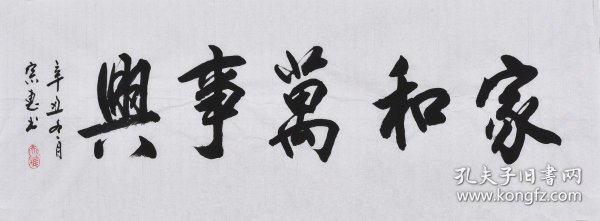 家和萬事興
辛丑九月
宗惠书
孔夫子旧书网
www.kongfz.com